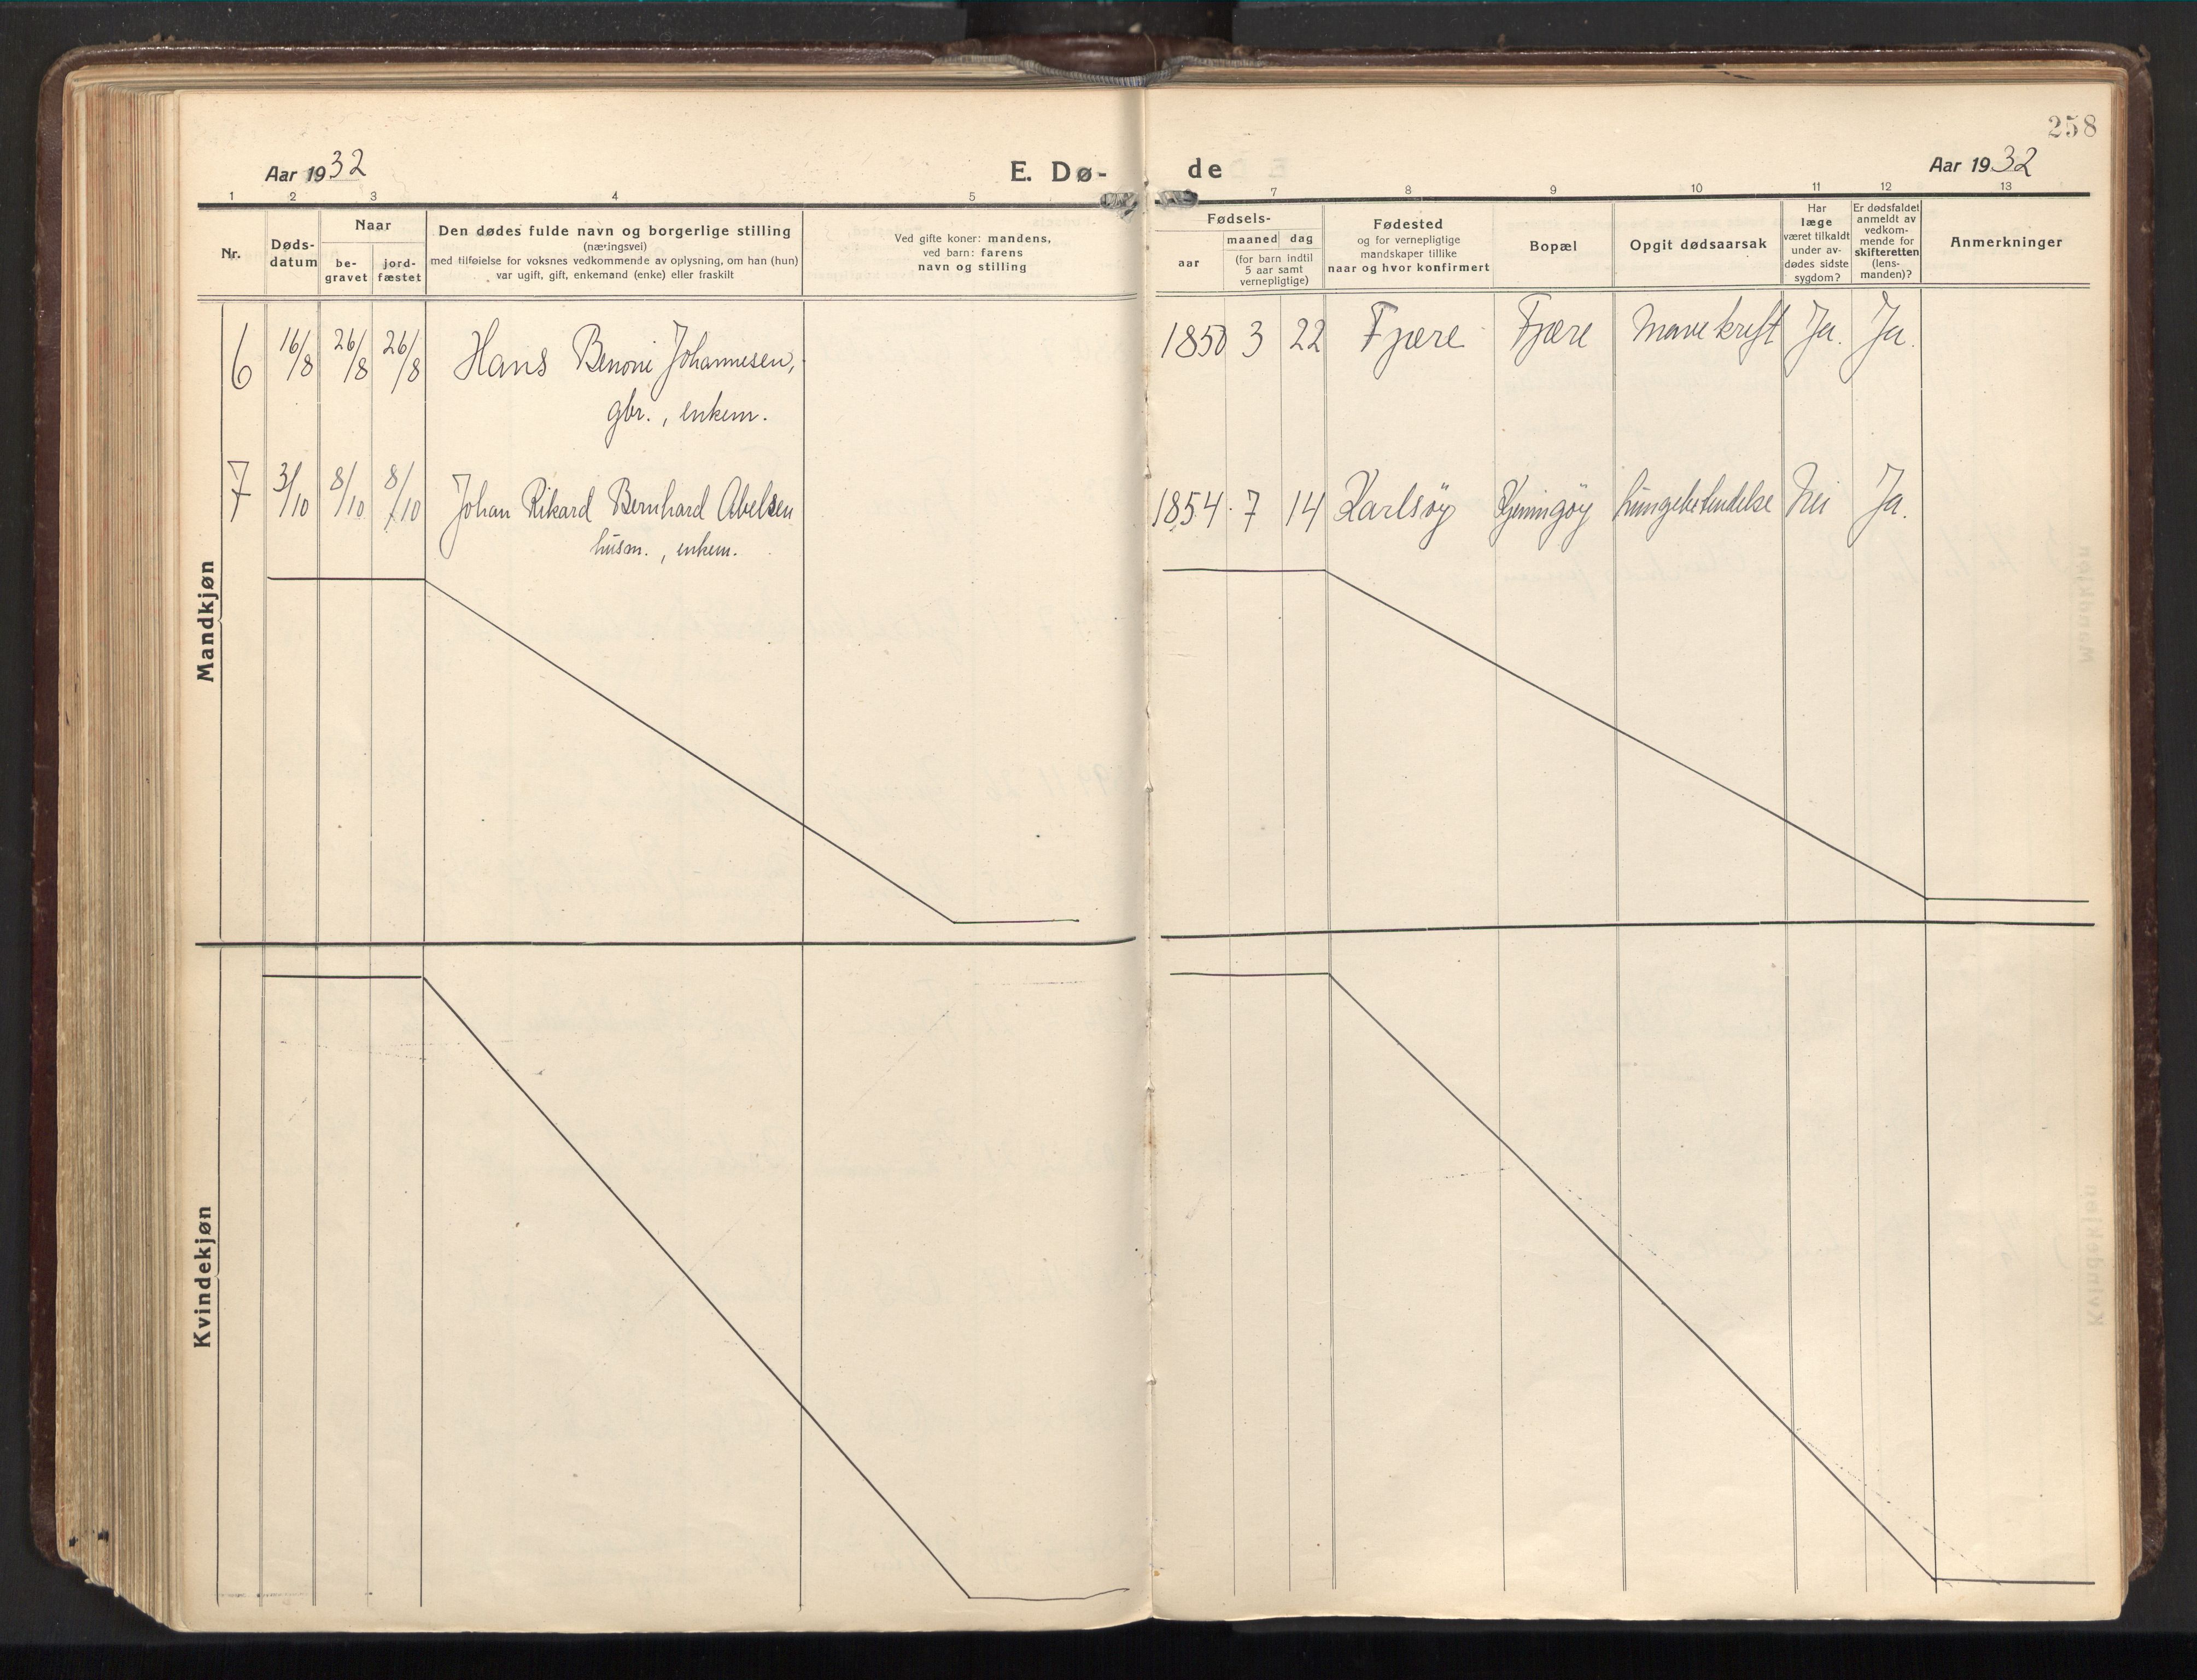 258
Aar 1932
E. Dø-
de
Aar 1932
1 2 3 4 5 7 8 9 10 11 12 13
Nr.
Døds-
datum
Naar
be-
gravet
jord-
fæstet
Den dødes fulde navn og borgerlige stilling
(næringsvei)
med tilføielse for voksnes vedkommende av oplysning, om han (hun)
var ugift, gift, enkemand (enke) eller fraskilt
Ved gifte koner: mandens,
ved barn: farens
navn og stilling
Fødsels-
aar
maaned dag
(for barn indtil
5 aar samt
vernepligtige)
Fødested
og for vernepligtige
mandskaper tillike
naar og hvor konfirmert
Bopæl
Opgit dødsaarsak
Har
læge
været tilkaldt
under av-
dødes sidste
sygdom?
Er dødsfaldet
anmeldt av
vedkom-
mende for
skifteretten
(lens-
manden)?
Anmerkninger
Mandkjøn
6 16/8 26/8 26/8 Hans Benoni Johannesen, 1850 3 22 Fjære Fjære Mavekreft Ja. Ja.
gbr., enkem.
7 3/10 8/10 8/10 Johan Rikard Bernhard Abelsen 1854 7 14 Karlsöy Gjömmgöy lungebetendelse Nei Ja.
husm., enkem.
Kvindekjøn